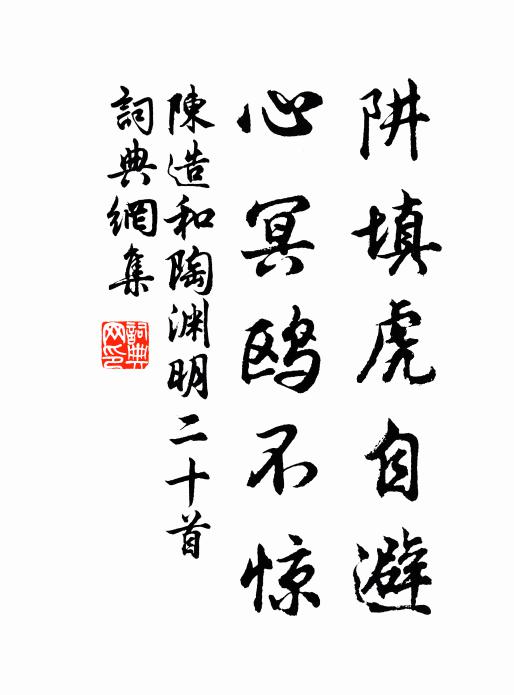 阱填虎自避
心冥鸥不惊
陳造和陶渊明二十首
詞典網集
詞典网印